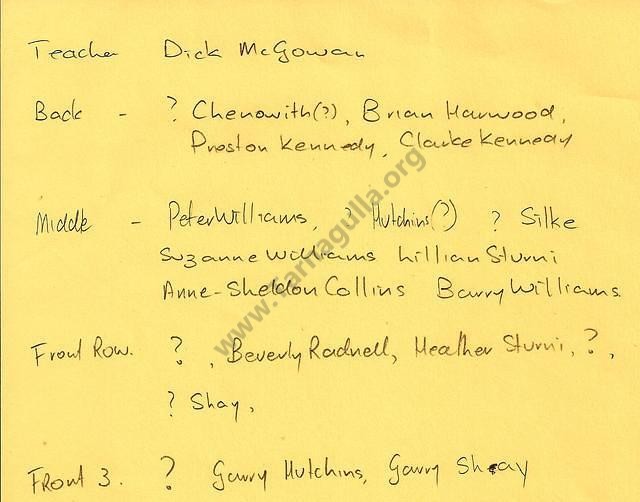 Teacher Dick McGowan
Back - ? Chenowith(?), Brian Harwood,
Preston Kennedy, Clarke Kennedy
Middle - Peter Williams, ? Hutchins(?) ? Silke
Suzanne Williams Lillian Sturni
Anne-Sheldon Collins Barry Williams
Front Row. ?, Beverly Radnell, Heather Sturni, ?,
? Shay,
Front 3. ? Garry Hutchins, Garry Shay
www.tarnagulla.org